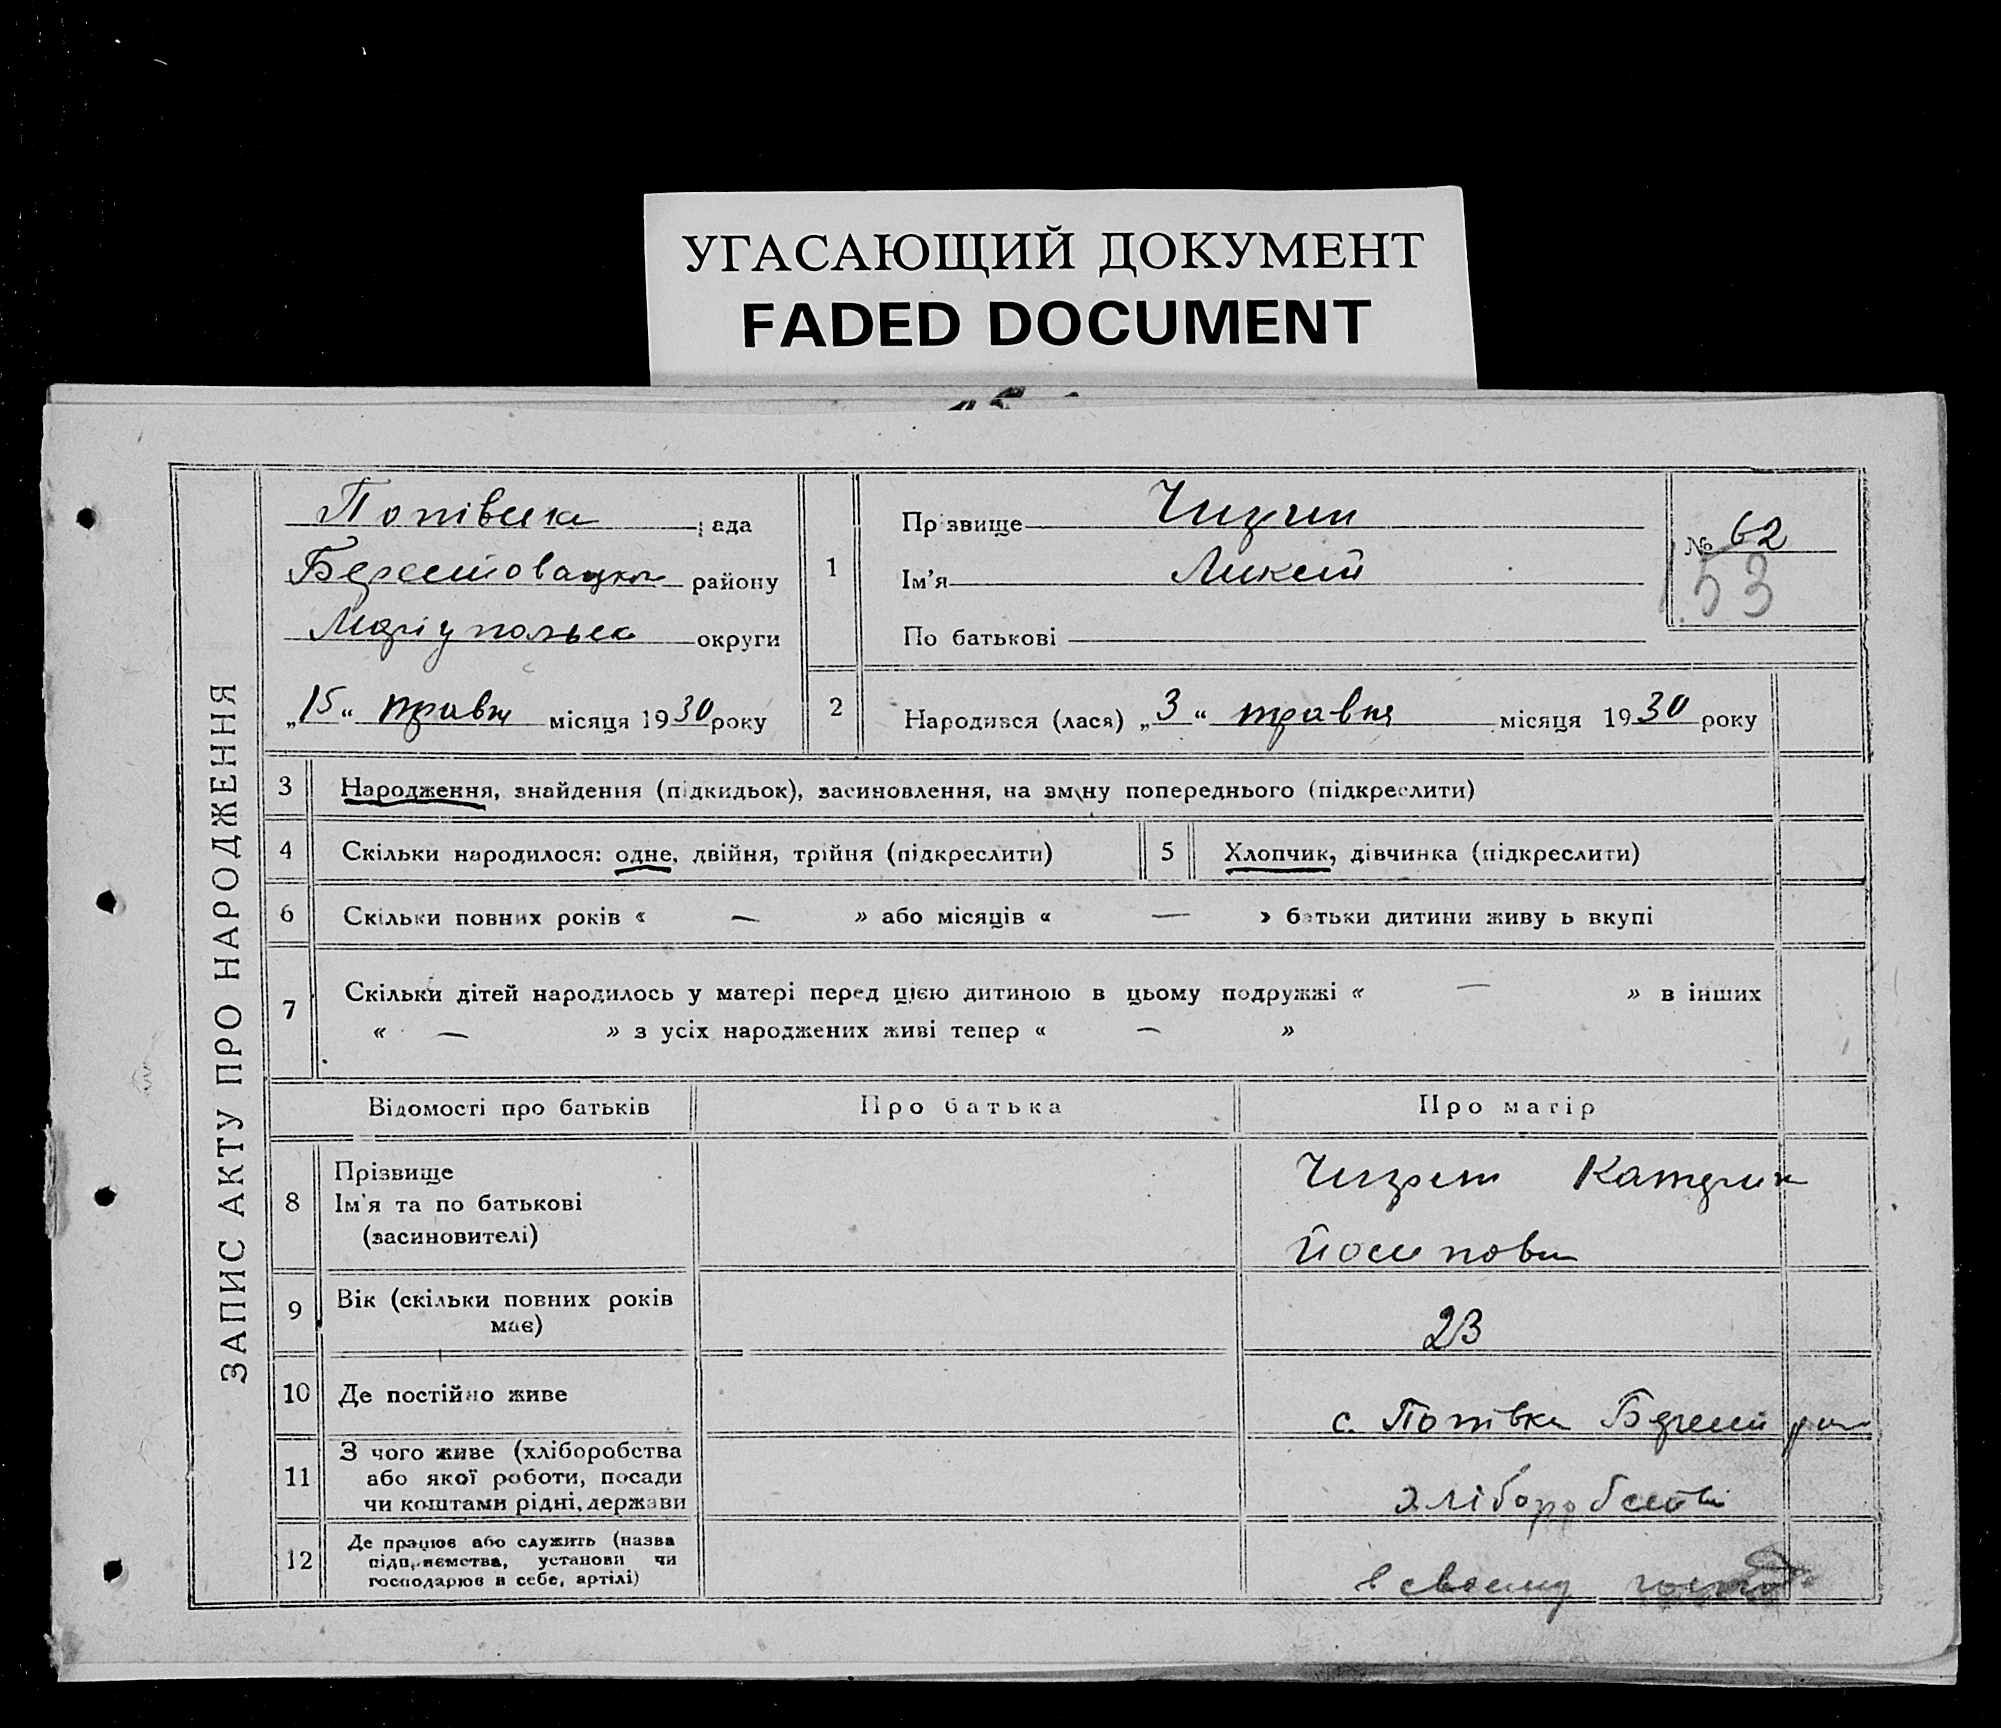 УГАСАЮЩИЙ ДОКУМЕНТ
FADED DOCUMENT
ЗАПИС АКТУ ПРО НАРОДЖЕННЯ
рада
району
округи
„15“ травн місяця 1930 року
1
Прізвище
Ім’я
По батькові
№ 62
53
2 Народився (лася) „3“ травня місяця 1930 року
3 Народження, знайдення (підкидьок), засиновлення, на зміну попереднього (підкреслити)
4 Скільки народилося: одне, двійня, трійня (підкреслити)
5 Хлопчик, дівчинка (підкреслити)
6 Скільки повних років « — » або місяців « — » батьки дитини живуть вкупі
7 Скільки дітей народилось у матері перед цією дитиною в цьому подружжі « — » в інших
« — » з усіх народжених живі тепер « — »
Відомості про батьків Про батька Про матір
8 Прізвище
Ім’я та по батькові
(засиновителі)
Йосиповн
9 Вік (скільки повних років
має)
23
10 Де постійно живе
с.
11 З чого живе (хліборобства
або якої роботи, посади
чи коштами рідні, держави
хліборобств
12 Де працює або служить (назва
підприємства, установи чи
господарює в себе, артілі)
в своему